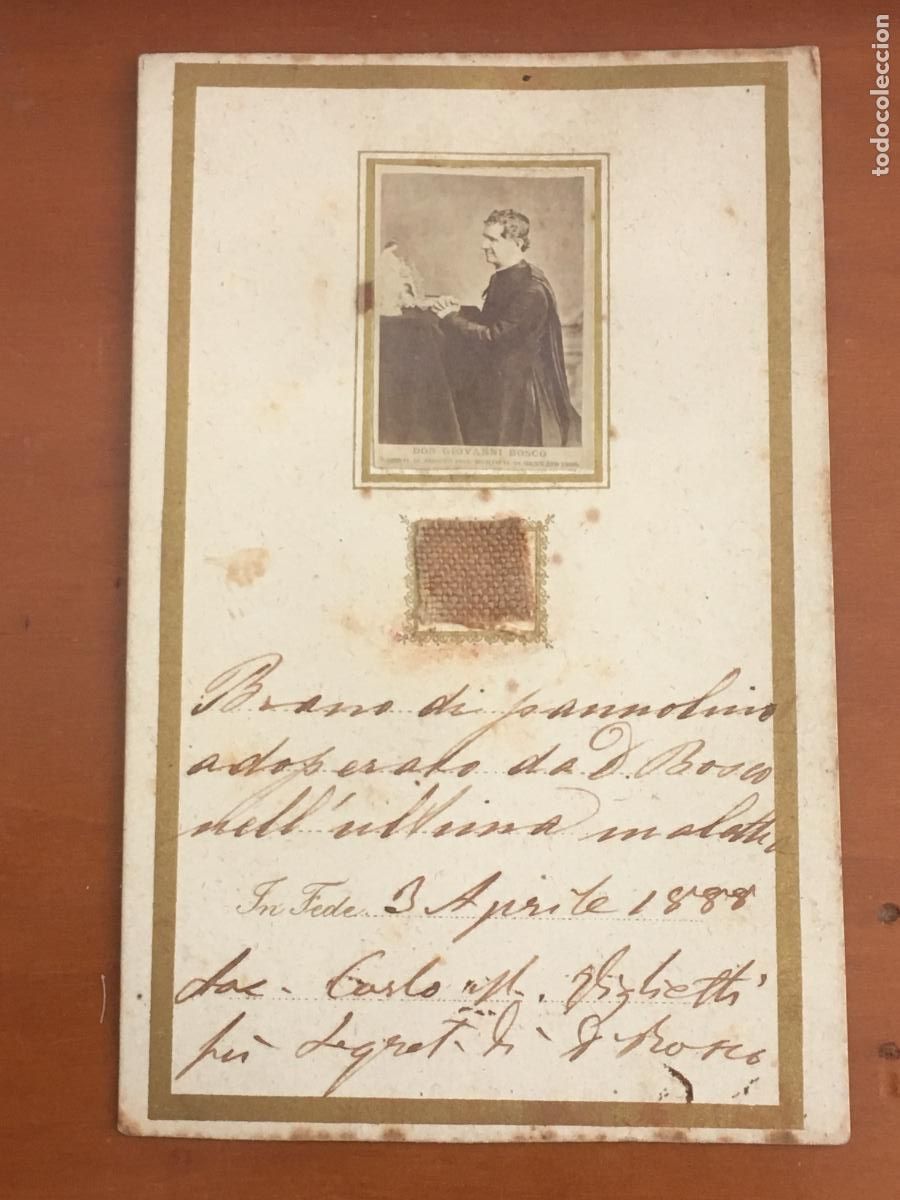 todocoleccion
DON GIOVANNI BOSCO
GENNAIO 1888
Brano di pannolino
adoperato da D. Bosco
nell'ultima malattia
In Fede 3 Aprile 1888
Sac. Carlo M. Viglietti
già Segret. di D Bosco